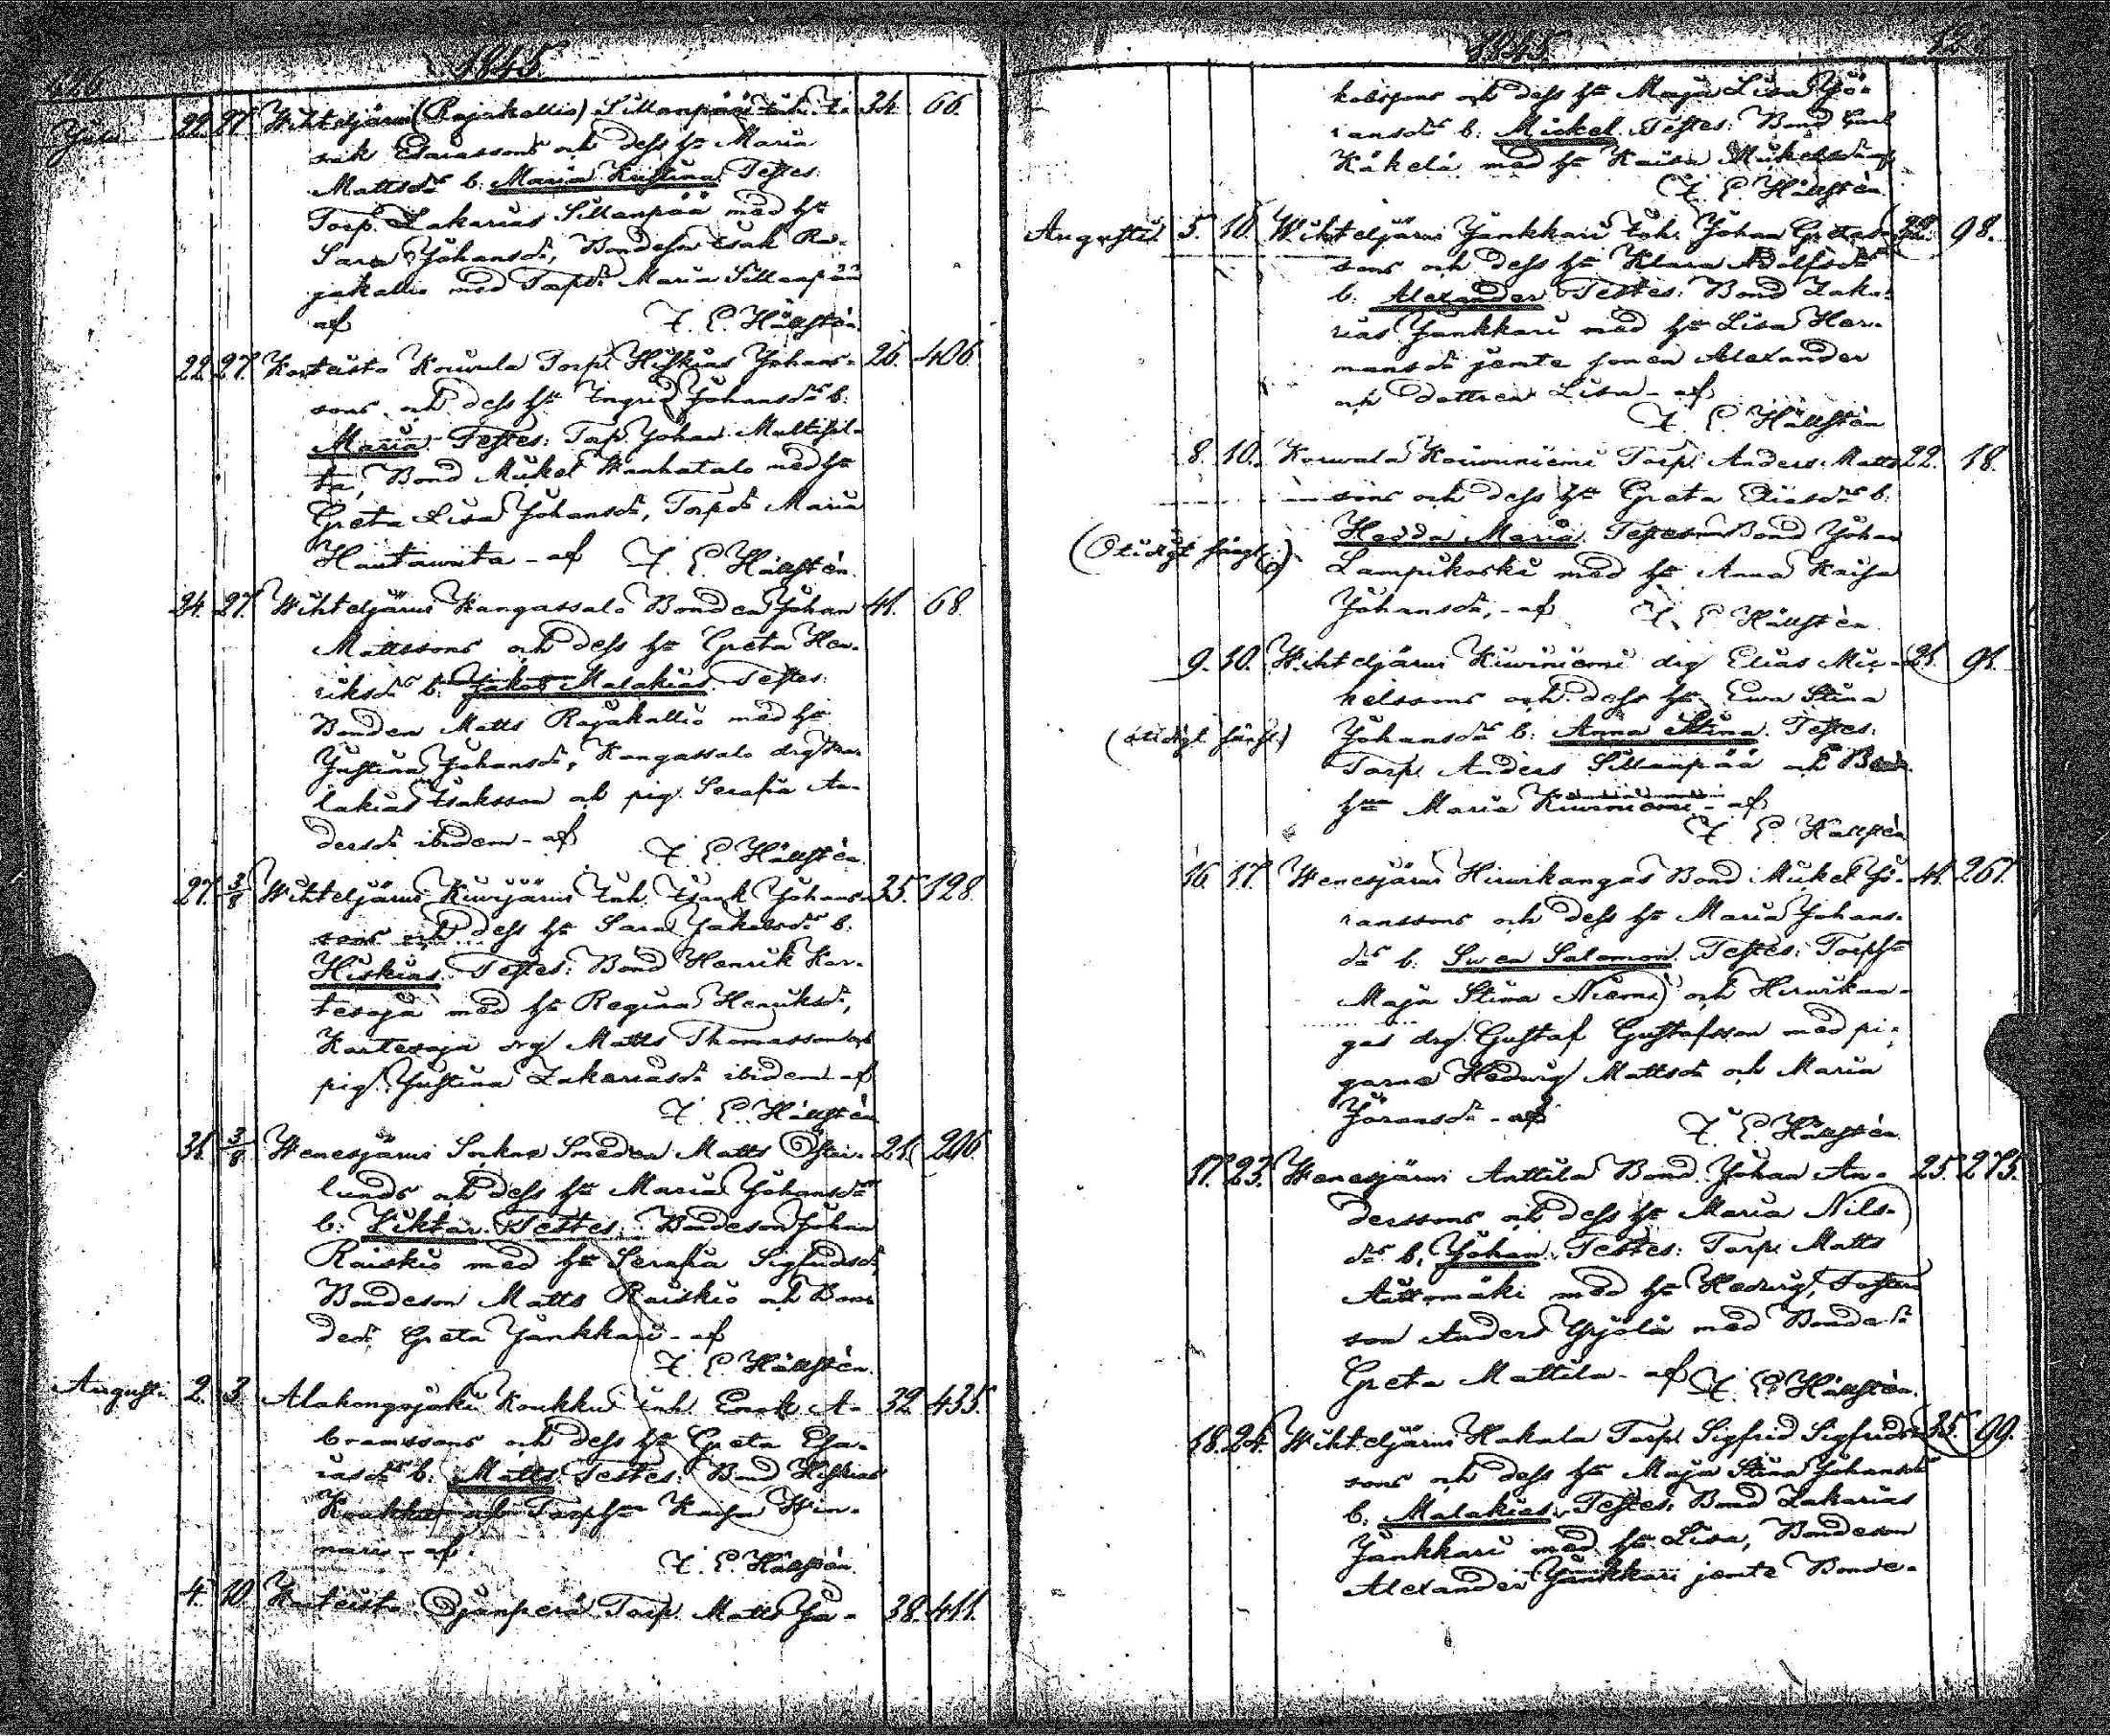 1845
126
Juli 22. 27. Wihteljärwi (Rajakallio) Sillanpää inh. I- 34. 66.
sak Esaiassons och dess h:u Maria
Mattsd:r b: Maria Kristina. Testes:
Torp. Zakarias Sillanpää med h:u
Sara Johansd:r, Bondeson Isak Ra-
jakallio med Torpd:r Maria Sillanpää
af J. E. Hällstén
22. 27. Korteisto Kouvula Torp. Hiskias Johans- 26. 406.
sons och dess h:u Ingrid Johansd:r b:
Maria. Testes: Torp. Johan Multisil-
ta, Bond Mickel Wanhatalo med h:u
Greta Lisa Johansd:r, Torpd:r Maria
Hautawiita - af J. E. Hällstén.
24. 27. Wihteljärwi Kangassalo Bonden Johan 41. 68.
Mattssons och dess h:u Greta Hen-
riksd:r b: Jakob Malakias. Testes:
Bonden Matts Rajakallio med h:u
Justina Johansd:r, Kangassalo drg Ma-
lakias Isaksson och pig. Serafia An-
dersd:r ibidem - af
J. E. Hällstén.
27. 3/8 Wihteljärwi Kiwijärwi Inh. Isak Johans- 35. 128.
sons och dess h:u Sara Jakobsd:r b:
Hiskias. Testes: Bond Henrik Kor-
tesoja med h:u Regina Henriksd:r,
Kortesoja drg Matts Thomasson och
pig. Justina Zakariasd:r ibidem - af
J. E. Hällstén
31. 3/8 Wenesjärwi Smeden Matts Öster- 21. 206.
lunds och dess h:u Maria Johansd:r
b: Viktor. Testes: Bondeson Johan
Raiskio med h:u Serafia Sigfridsd:r,
Bondeson Matts Raiskio och Bon-
ded:r Greta Jankkari - af
J. E. Hällstén.
Augusti 2. 3. Alahongojoki Koukku inh. Enok A- 32. 435.
bramssons och dess h:u Greta Esa-
iasd:r b: Matts. Testes: Bond Hiskias
Koukku och Torph:u Kaisa Win-
nari - af
J. E. Hällstén.
4. 10. Korteisto Torp. Matts Ja- 38. 411.
1845.
127
kobssons och dess h:u Maja Lisa Jö-
ransd:r b: Mickel. Testes: Bond Carl
Käkelä med h:u Kaisa Mickelsd:r af
J. E. Hällstén
Augusti. 5. 10. Wihteljärwi Jankkari Inh. Johan Gustafs- 98.
sons och dess h:u Klara Adolfsd:r
b: Alexander. Testes: Bond Zaka-
rias Jankkari med h:u Lisa Her-
mansd:r jemte sonen Alexander
och dottren Lisa - af
J. E. Hällstén
8. 10. Korwala Koiwuniemi Torp. Anders Matts- 22. 18.
sons och dess h:u Greta Eliasd:r b:
Hedda Maria. Testes: Bond Johan
(Otidigt
Lampikoski med h:u Anna Kaisa
Johansd:r, - af J. E. Hällstén
9. 10. Wihteljärwi Kiwiniemi drg Elias Mic- 21. 91.
helssons och dess h:u Ewa Stina
(otidigt
Johansd:r b: Anna Stina. Testes:
Torp. Anders Sillanpää och Bond
h:u Maria Kiwiniemi - af
J. E. Hällstén
16. 17. Wenesjärwi Hirwikangas Bond Mickel Jö- 41. 267.
ranssons och dess h:u Maria Johans-
d:r b: Swen Salomon. Testes: Torph:u
Maja Stina Niemi och Hirwikan-
gas drg Gustaf Gustafsson med pi-
gorna Hedwig Mattsd:r och Maria
Jöransd:r - af
J. E. Hällstén
17. 23. Wenesjärwi Anttila Bond. Johan An- 25. 275.
derssons och dess h:u Maria Nils-
d:r b: Johan. Testes: Torp. Matts
med h:u Hedwig, Torp-
son Anders Yrjölä med Bonded:r
Greta Mattila - af J. E. Hällstén.
18. 24. Wihteljärwi Hakala Torp. Sigfrid Sigfrids- 35. 99.
sons och dess h:u Maja Stina Johansd:r
b: Malakias. Testes: Bond Zakarias
Jankkari med h:u Lisa, Bondeson
Alexander Jankkari jemte Bonde-